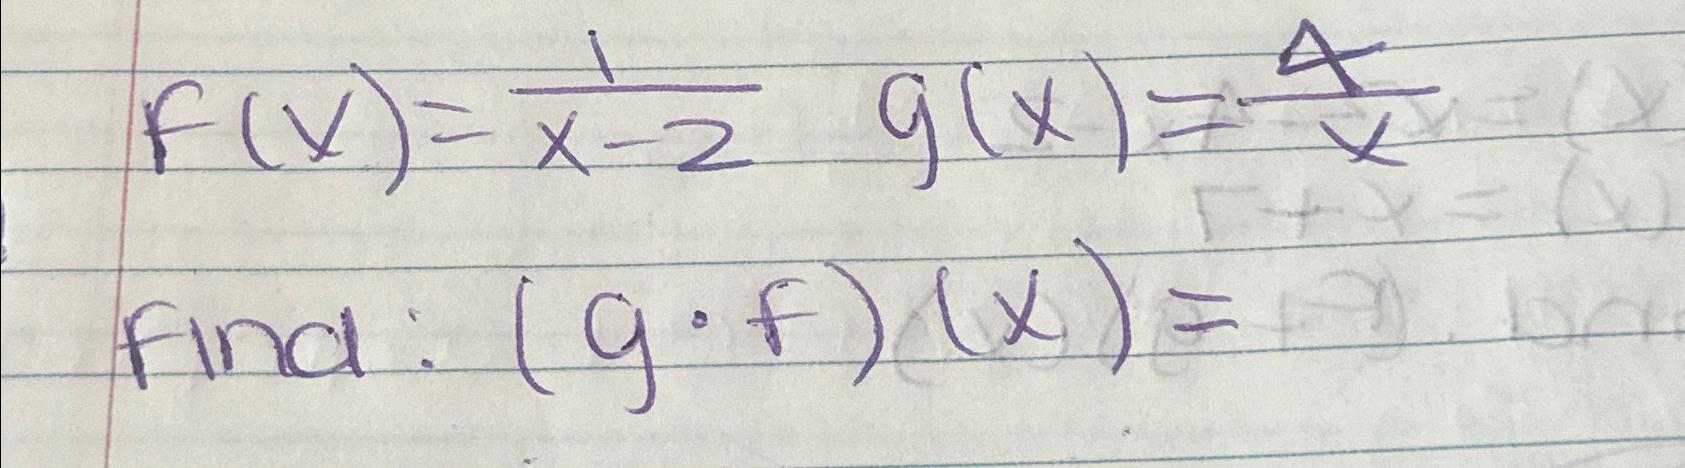 f(x) = 1/(x-2) g(x) = 4/x
find: (g · f)(x) =